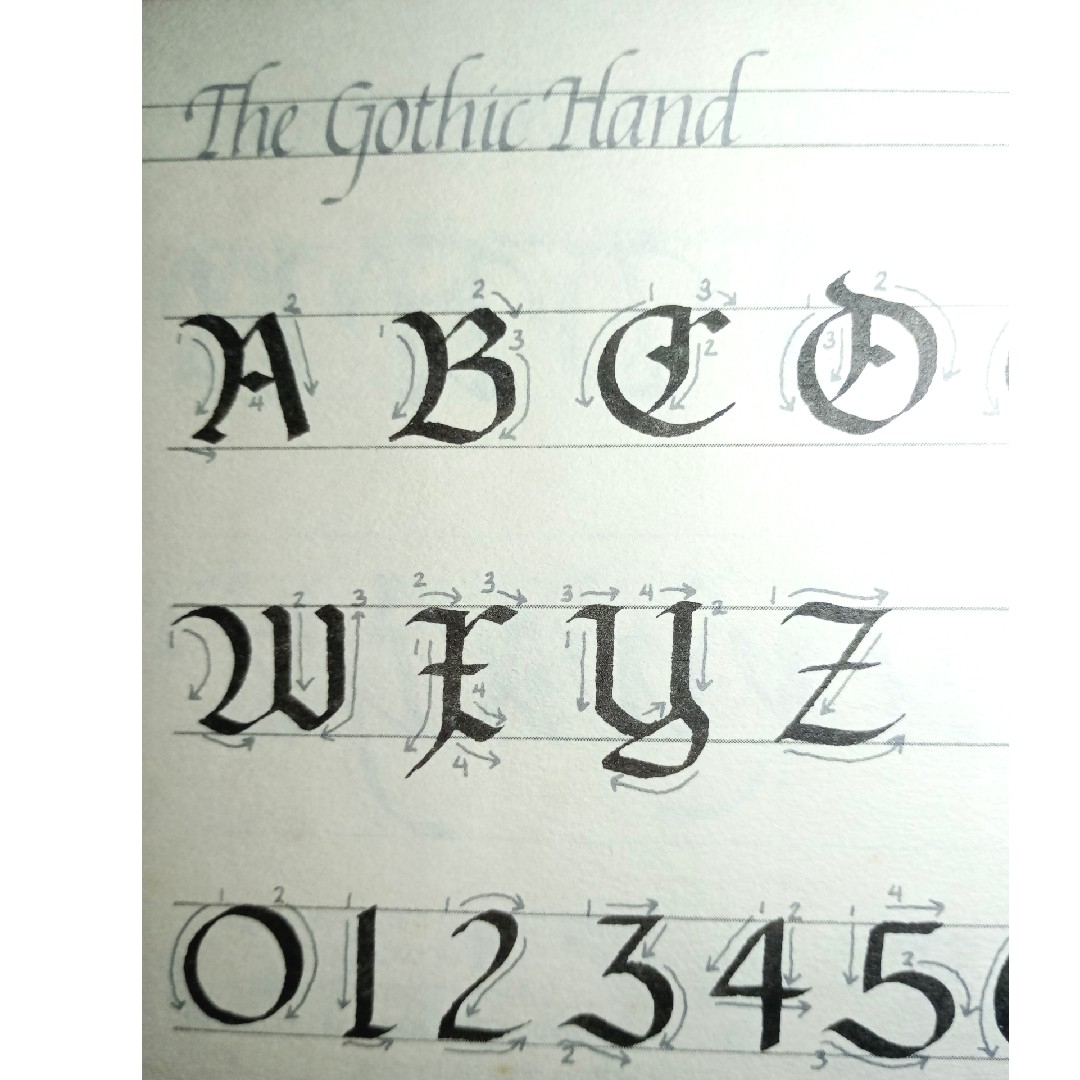 The Gothic Hand
A B C D
W X Y Z
0 1 2 3 4 5